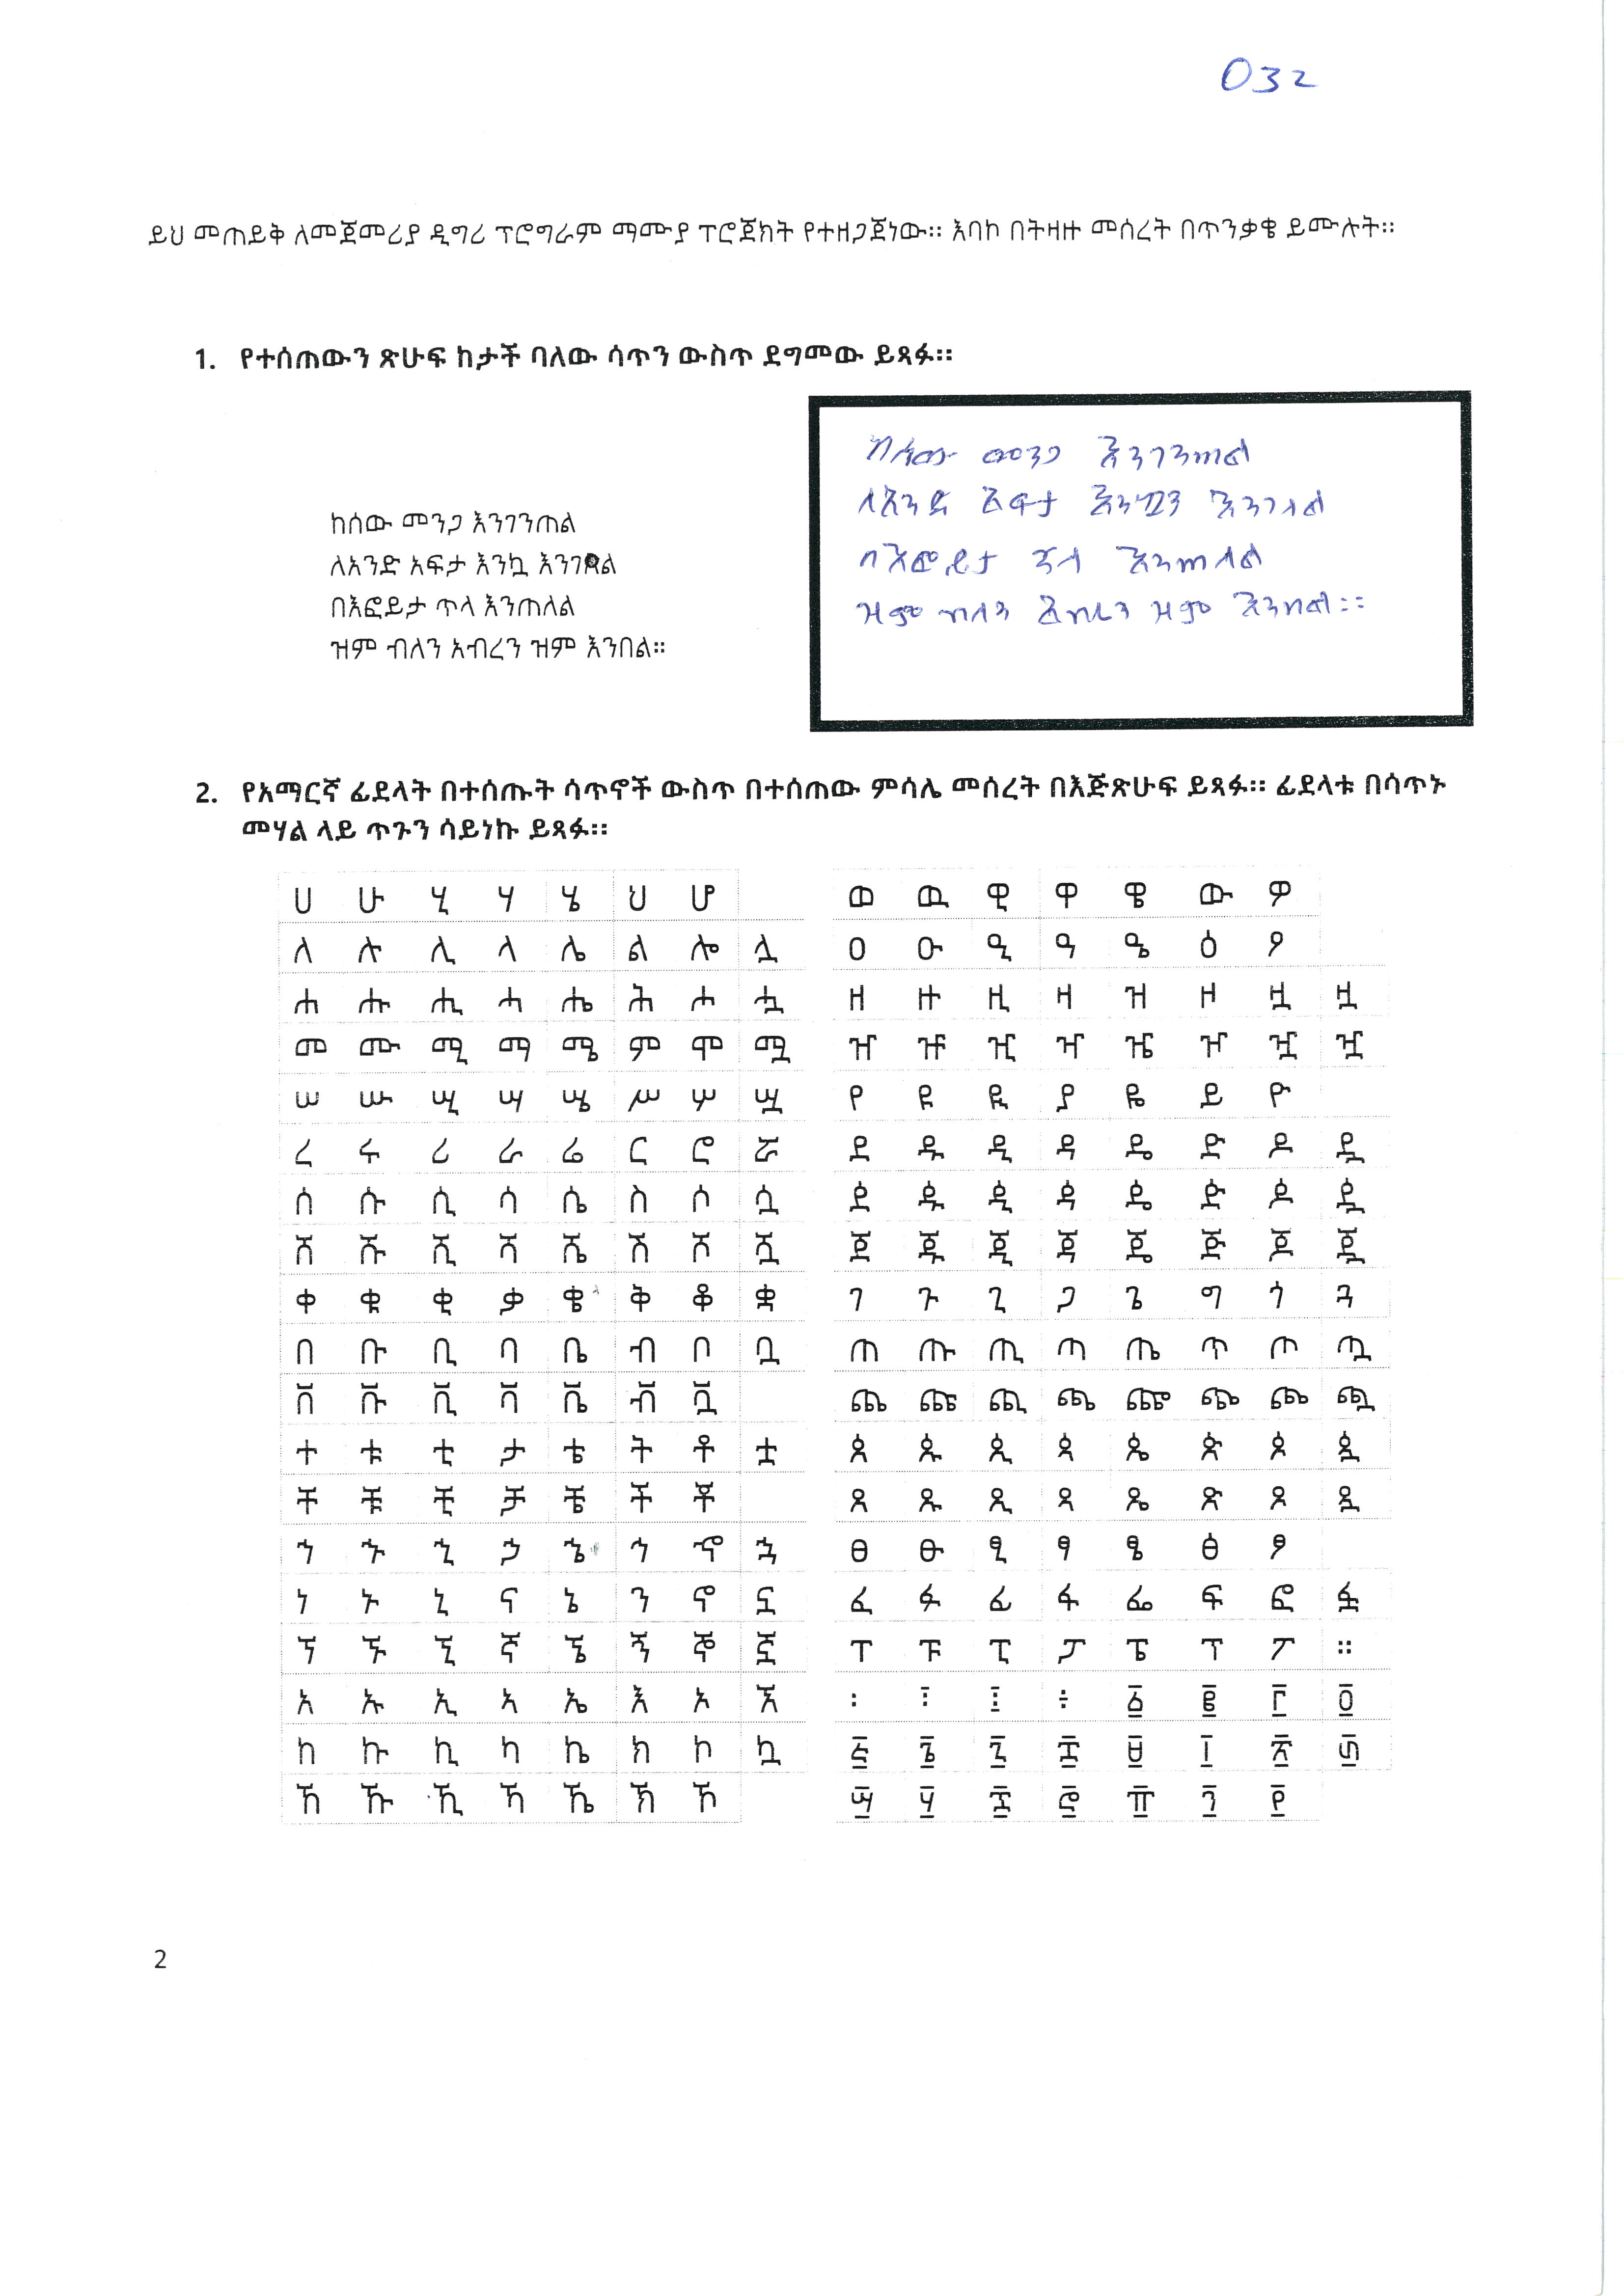 032
ይህ መጠይቅ ለመጀመሪያ ዲግሪ ፕሮግራም ማሙያ ፕሮጀክት የተዘጋጀነው። እባኮ በትዛዙ መሰረት በጥንቃቄ ይሙሉት።
1. የተሰጠውን ጽሁፍ ከታች ባለው ሳጥን ውስጥ ደግመው ይጻፉ።
ከሰው መንጋ እንገንጠል
ለአንድ አፍታ እንኳ እንገለል
በእፎይታ ጥላ እንጠለል
ዝም ብለን አብረን ዝም እንበል።
ከሰው መንጋ እንገንጠል
ለአንድ አፍታ እንኳን እንገለል
በእፎይታ ጥላ እንጠለል
ዝም ብለን አብረን ዝም እንበል።
2. የአማርኛ ፊደላት በተሰጡት ሳጥኖች ውስጥ በተሰጠው ምሳሌ መሰረት በእጅጽሁፍ ይጻፉ። ፊደላቱ በሳጥኑ
መሃል ላይ ጥጉን ሳይነኩ ይጻፉ።
ሀ ሁ ሂ ሃ ሄ ህ ሆ
ለ ሉ ሊ ላ ሌ ል ሎ ሏ
ሐ ሑ ሒ ሓ ሔ ሕ ሖ ሗ
መ ሙ ሚ ማ ሜ ም ሞ ሟ
ሠ ሡ ሢ ሣ ሤ ሥ ሦ ሧ
ረ ሩ ሪ ራ ሬ ር ሮ ሯ
ሰ ሱ ሲ ሳ ሴ ስ ሶ ሷ
ሸ ሹ ሺ ሻ ሼ ሽ ሾ ሿ
ቀ ቁ ቂ ቃ ቄ ቅ ቆ ቋ
በ ቡ ቢ ባ ቤ ብ ቦ ቧ
ቨ ቩ ቪ ቫ ቬ ቭ ቯ
ተ ቱ ቲ ታ ቴ ት ቶ ቷ
ቸ ቹ ቺ ቻ ቼ ች ቾ
ኀ ኁ ኂ ኃ ኄ ኅ ኆ ኋ
ነ ኑ ኒ ና ኔ ን ኖ ኗ
ኘ ኙ ኚ ኛ ኜ ኝ ኞ ኟ
አ ኡ ኢ ኣ ኤ እ ኦ ኧ
ከ ኩ ኪ ካ ኬ ክ ኮ ኳ
ኸ ኹ ኺ ኻ ኼ ኽ ኾ
ወ ዉ ዊ ዋ ዌ ው ዎ
ዐ ዑ ዒ ዓ ዔ ዕ ዖ
ዘ ዙ ዚ ዛ ዝ ዞ ዟ ዟ
ዠ ዡ ዢ ዣ ዤ ዦ ዧ ዧ
የ ዩ ዪ ያ ዬ ይ ዮ
ደ ዱ ዲ ዳ ዴ ድ ዶ ዷ
ዸ ዹ ዺ ዻ ዼ ዽ ዾ ዿ
ጀ ጁ ጂ ጃ ጄ ጅ ጆ ጇ
ገ ጉ ጊ ጋ ጌ ግ ጎ ጓ
ጠ ጡ ጢ ጣ ጤ ጥ ጦ ጧ
ጨ ጩ ጪ ጫ ጬ ጭ ጮ ጯ
ጰ ጱ ጲ ጳ ጴ ጵ ጶ ጷ
ጸ ጹ ጺ ጻ ጼ ጽ ጾ ጿ
ፀ ፁ ፂ ፃ ፄ ፅ ፆ
ፈ ፉ ፊ ፋ ፌ ፍ ፎ ፏ
ፐ ፑ ፒ ፓ ፔ ፕ ፖ ።
፡ ፤ ፥ ፩ ፪ ፫ ፬
፭ ፮ ፯ ፰ ፱ ፲ ፳ ፴
፵ ፶ ፷ ፸ ፹ ፺ ፻
2